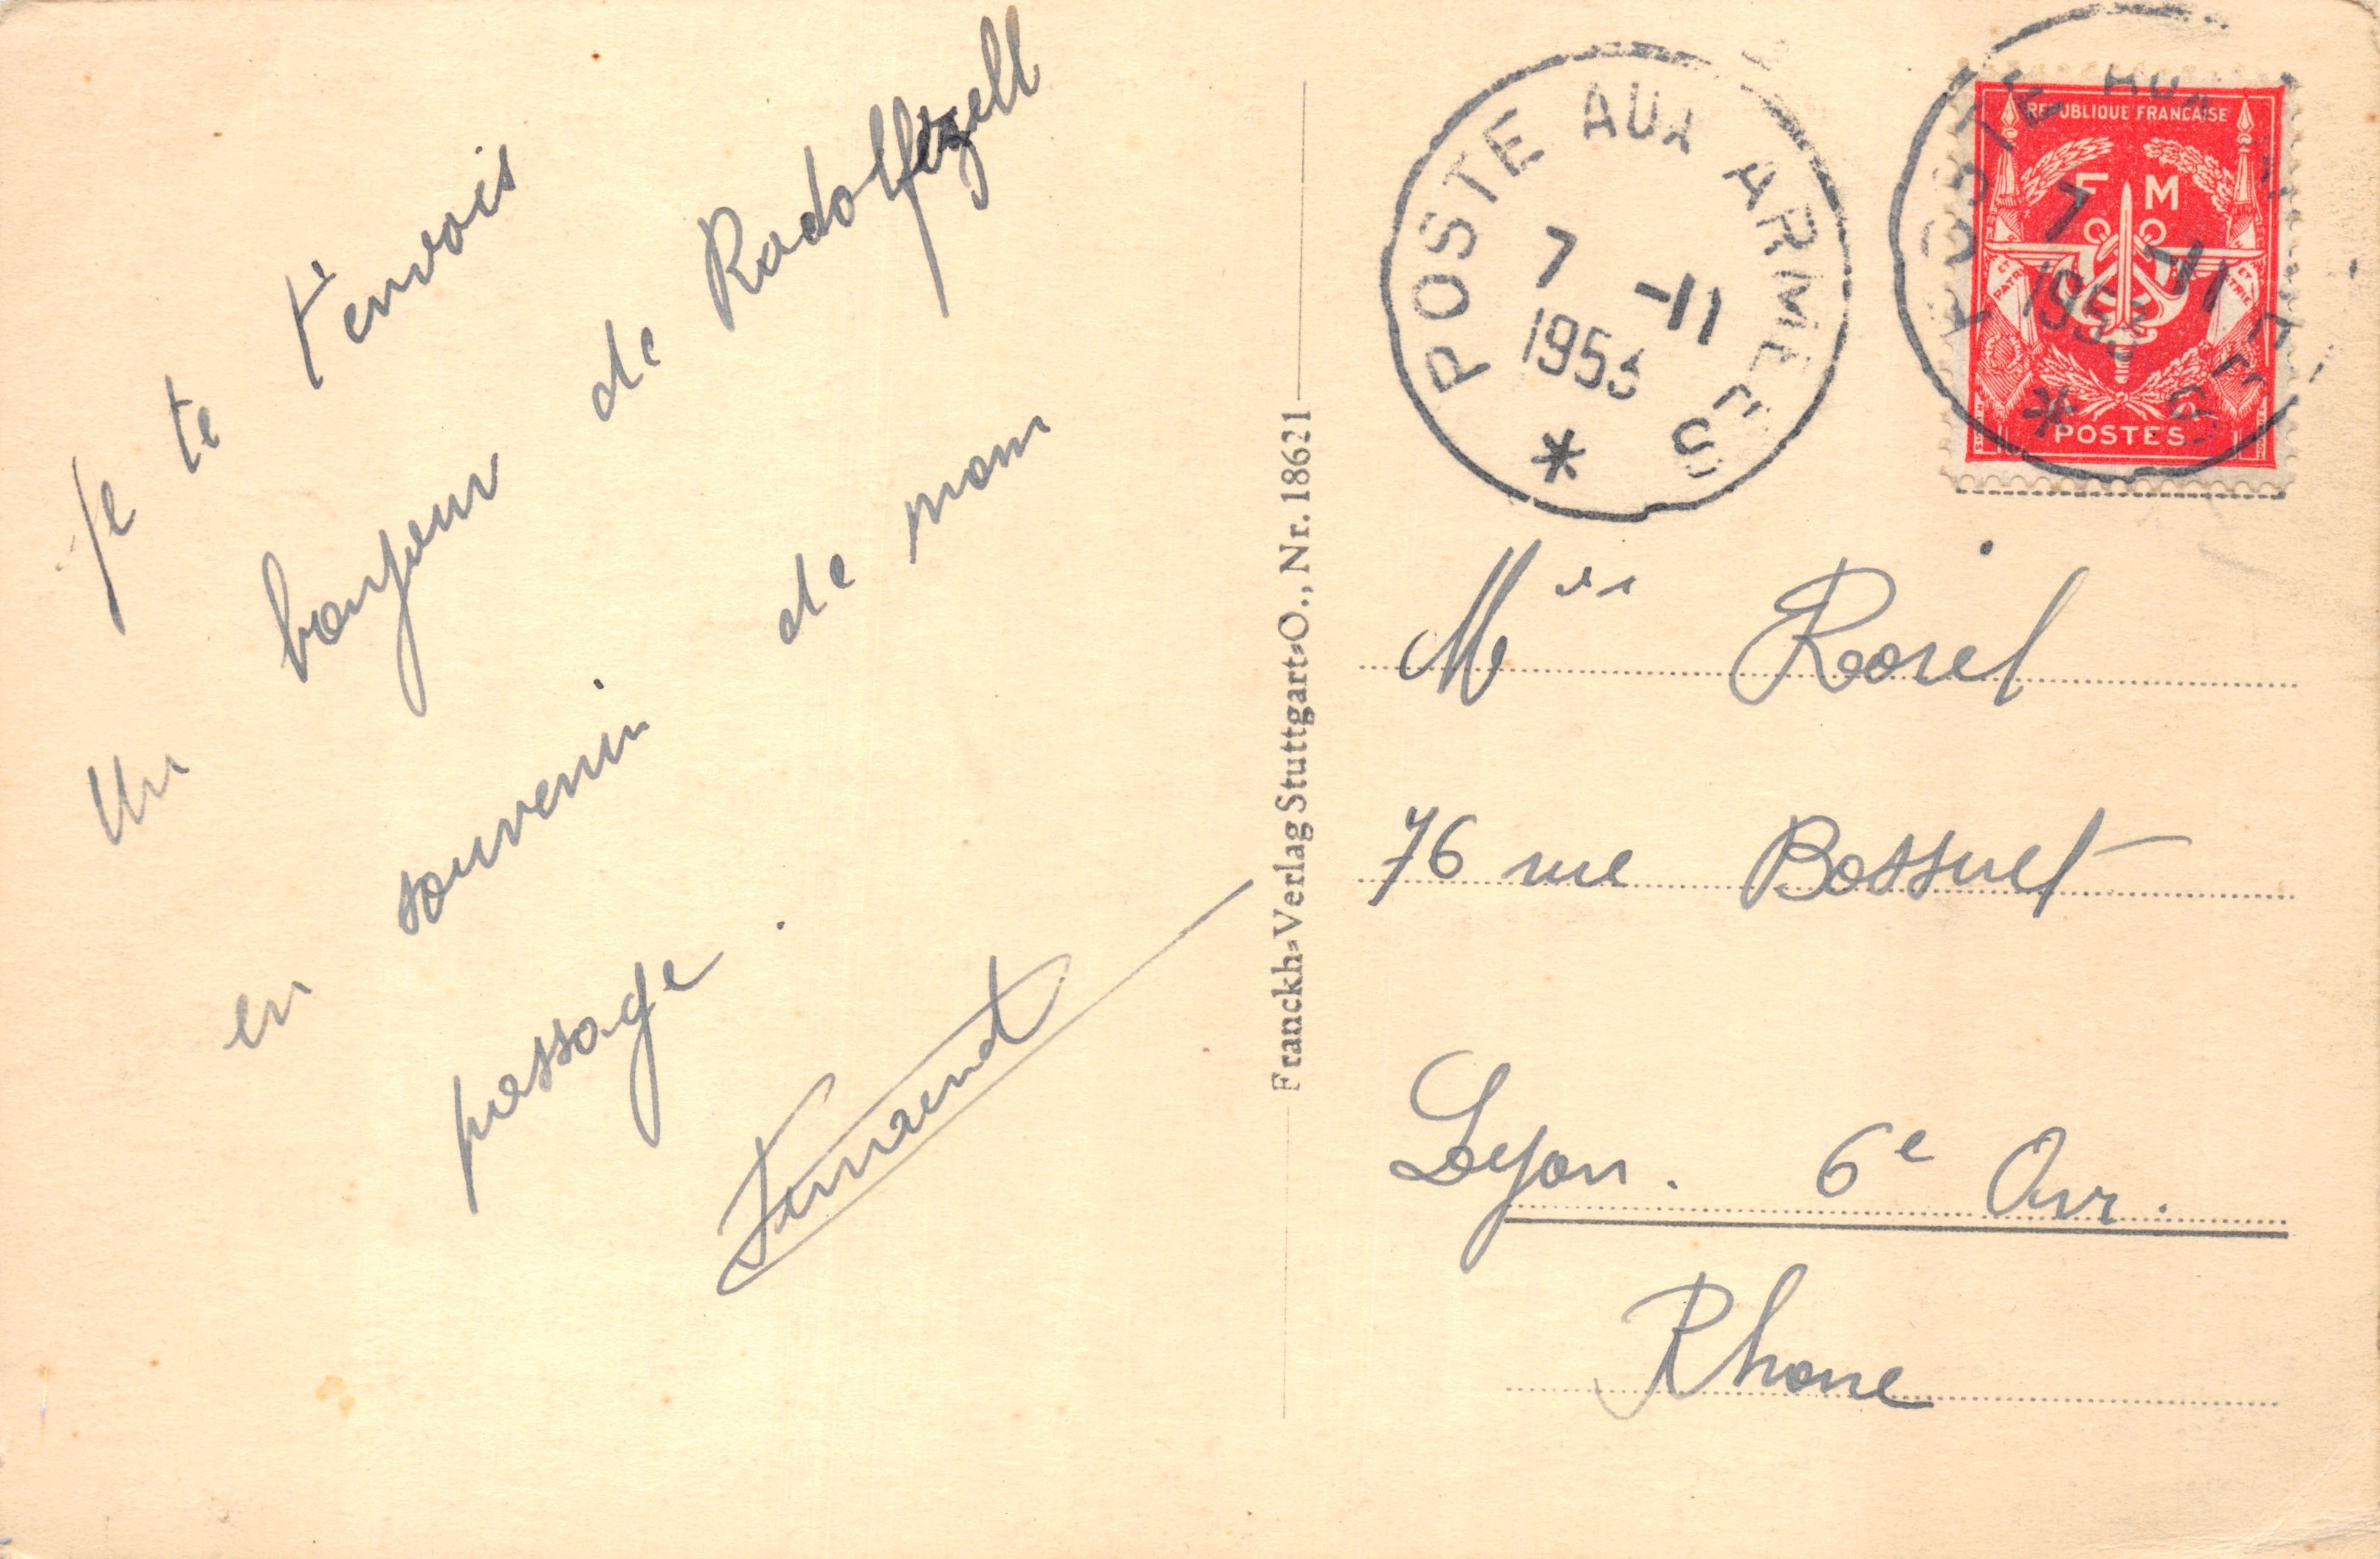 Je te t'envois
un bonjour de Radolfzell
en souvenir de mon
passage.
Fernand
Franckh-Verlag Stuttgart-O., Nr. 18621
POSTE AUX ARMÉES
7 -11
1953
*
POSTE AUX ARMÉES
7 -11
1953
*
REPUBLIQUE FRANCAISE
F M
POSTES
76 rue Bossuet
Lyon. 6e Arr.
Rhone